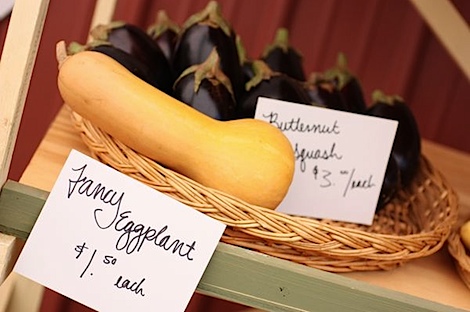 Butternut
squash
$3.00/each
Fancy
Eggplant
$1.50
each